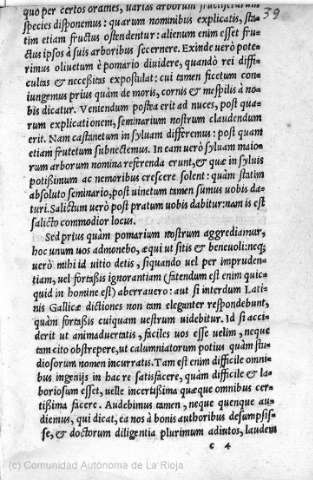 quo per certos orames, varias arborum fructiferarum
39
species disponemus : quarum nominibus explicatis, sta-
tim etiam fructus ostendentur: alienum enim esset fru-
ctus ipsos à suis arboribus secernere. Exinde uerò pote-
rimus oliuetum è pomario diuidere, quandò rei diffi-
cultas & necessitas expostulat: cui tamen ficetum con-
iungemus prius quàm de moris, cornis & mespilis à no-
bis dicatur. Veniendum postea erit ad nuces, post qua-
rum explicationem, seminarium nostrum claudendum
erit. Nam castanetum in syluam differemus : post quam
etiam frutetum subnectemus. In eam uerò syluam maio-
rum arborum nomina referenda erunt, & quæ in syluis
potissimum ac nemoribus crescere solent: quàm statim
absoluto seminario, post uinetum tamen sumus uobis da-
turi. Salictum uerò post pratum uobis dabitur: nam is est
salicto commodior locus.
Sed prius quàm pomarium nostrum aggrediamur,
hoc unum uos admonebo, æqui ut sitis & beneuoli: neq;
uerò mihi id uitio detis, siquando uel per impruden-
tiam, uel fortassis ignorantiam (fatendum est enim quic-
quid in homine est) aberrauero: aut si interdum Lati-
nis Gallicæ dictiones non tam eleganter respondebunt,
quàm fortassis cuiquam uestrum uidebitur. Id si acci-
derit ut animaduertatis, faciles uos esse uelim, neque
tam cito obstrepere, ut calumniatorum potius quàm stu-
diosorum nomen incurratis. Tam est enim difficile omni-
bus ingenijs in hac re satisfacere, quàm difficile & la-
boriosum esset, uelle incertissima quæque omnibus cer-
tissima facere. Audebimus tamen, neque quenque au-
diemus, qui dicat, ea nos à bonis authoribus desumpsis-
se, & doctorum diligentia plurimum adiutos, laudem
c 4
(c) Comunidad Autónoma de La Rioja